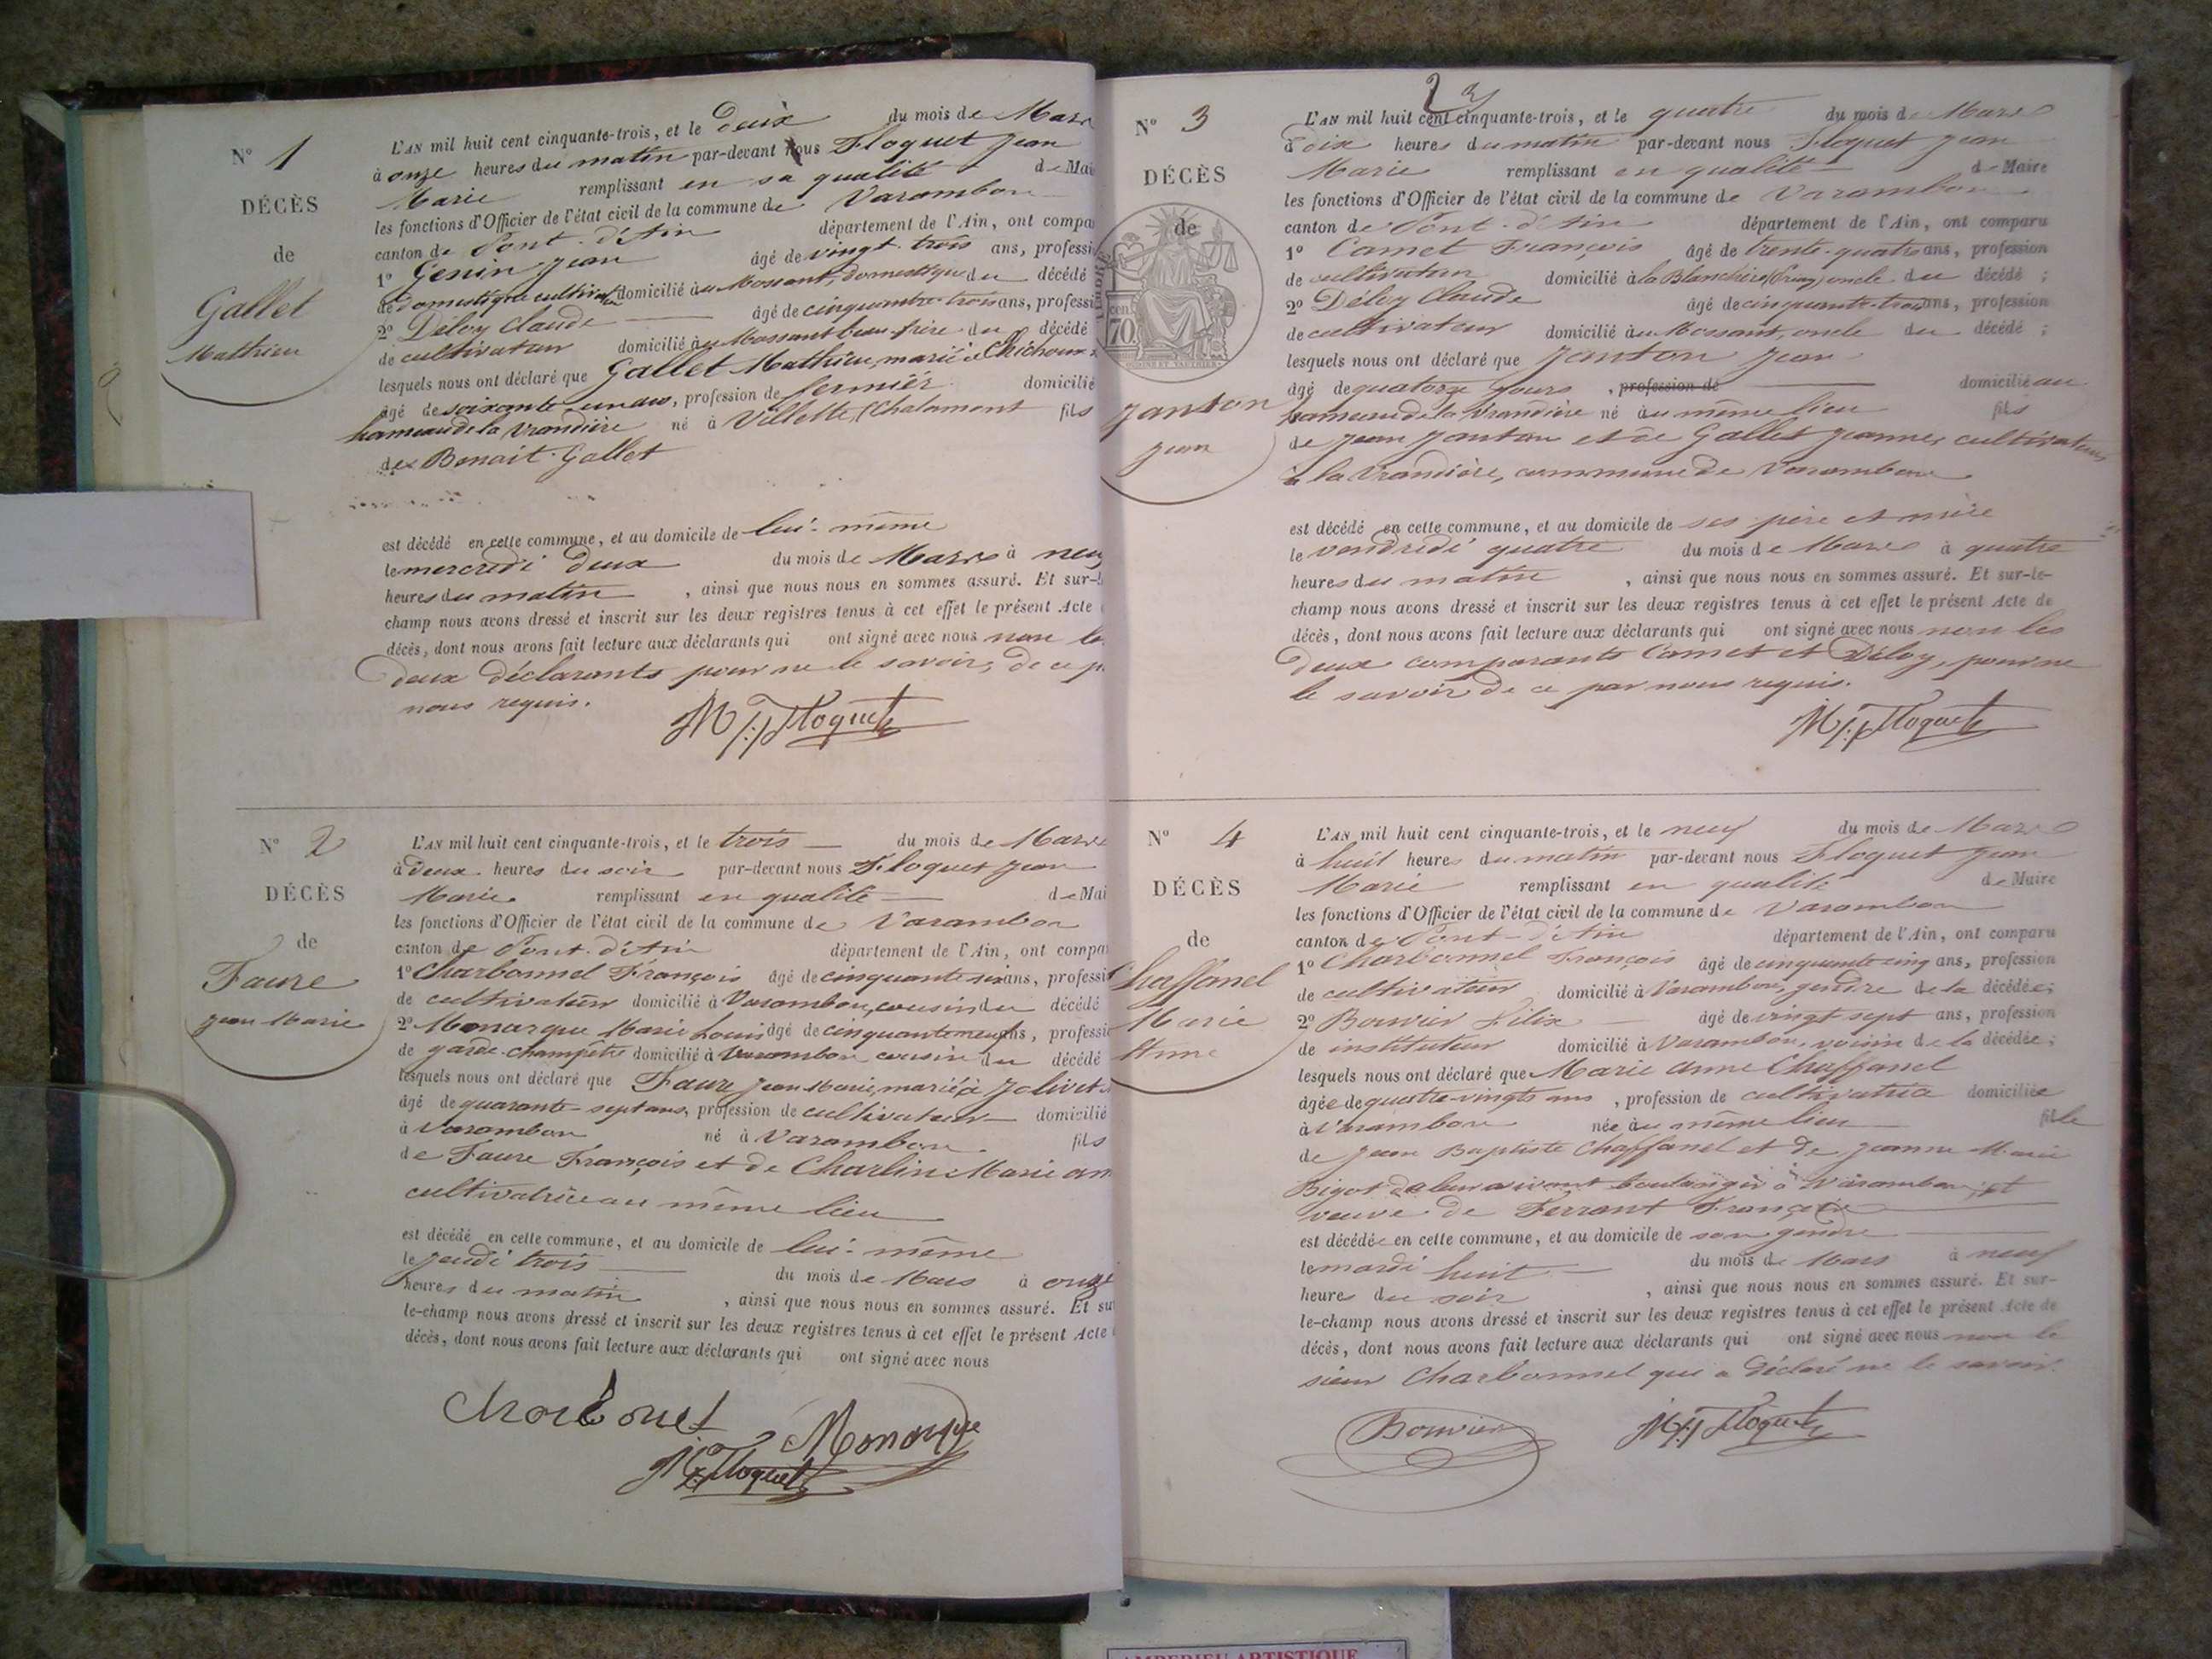 N° 1
DÉCÈS
de
Gallet
Mathieu
L'AN mil huit cent cinquante-trois, et le deux du mois de Mars
à onze heures du matin par-devant nous Floquet Jean
Marie remplissant en sa qualité de Mai
les fonctions d'Officier de l'état civil de la commune de Varambon
canton de Pont-d'Ain département de l'Ain, ont compa
1° Genin Jean âgé de vingt-trois ans, professi
de domestique cultivateur domicilié au Mossant, domestique du décédé
2° Déloy Claude âgé de cinquante-trois ans, professi
de cultivateur domicilié au Mossant beau-frère du décédé
lesquels nous ont déclaré que Gallet Mathieu, marié à
âgé de soixante-un ans, profession de fermier domicilié
hameau de la Vrandière né à Villette, (Chalamont fils
de Benoit Gallet
est décédé en cette commune, et au domicile de lui-même
le mercredi deux du mois de Mars à neuf
heures du matin , ainsi que nous nous en sommes assuré. Et sur-l
champ nous avons dressé et inscrit sur les deux registres tenus à cet effet le présent Acte
décès, dont nous avons fait lecture aux déclarants qui ont signé avec nous non le
deux déclarants pour ne le savoir, de ce p
nous requis.
M J. Floquet
N° 2
DÉCÈS
de
Faure
Jean Marie
L'AN mil huit cent cinquante-trois, et le trois du mois de Mars
à deux heures du soir par-devant nous Floquet Jean
Marie remplissant en qualité de Mai
les fonctions d'Officier de l'état civil de la commune de Varambon
canton de Pont-d'Ain département de l'Ain, ont compa
1° Charbonnel François âgé de cinquante-six ans, professi
de cultivateur domicilié à Varambon, cousin du décédé
2° Monarque Marie Louis âgé de cinquante neuf ans, professi
de garde-champêtre domicilié à Varambon cousin du décédé
lesquels nous ont déclaré que Faure Jean Marie, marié à Jolivet
âgé de quarante-sept ans, profession de cultivateur domicilié
à Varambon né à Varambon fils
de Faure François et de Charlin Marie an
cultivatrice au même lieu
est décédé en cette commune, et au domicile de lui-même
le jeudi trois du mois de Mars à onze
heures du matin , ainsi que nous nous en sommes assuré. Et su
le-champ nous avons dressé et inscrit sur les deux registres tenus à cet effet le présent Acte
décès, dont nous avons fait lecture aux déclarants qui ont signé avec nous
Charbonel Monarque
M J. Floquet
23
N° 3
DÉCÈS
de
Janton
Jean
70
L'AN mil huit cent cinquante-trois, et le quatre du mois de Mars
à dix heures du matin par-devant nous Floquet Jean
Marie remplissant en qualité de Maire
les fonctions d'Officier de l'état civil de la commune de Varambon
canton de Pont-d'Ain département de l'Ain, ont comparu
1° Camet François âgé de trente-quatre ans, profession
de cultivateur domicilié à la Blanchère (Druy) oncle du décédé ;
2° Déloy Claude âgé de cinquante-trois ans, profession
de cultivateur domicilié au Mossant, oncle du décédé ;
lesquels nous ont déclaré que Janton Jean
âgé de quatorze jours , profession de domicilié au
hameau de la Vrandière né au même lieu fils
de Jean Janton et de Gallet Jeanne, cultivateurs
à la Vrandière, commune de Varambon
est décédé en cette commune, et au domicile de ses père et mère
le vendredi quatre du mois de Mars à quatre
heures du matin , ainsi que nous nous en sommes assuré. Et sur-le-
champ nous avons dressé et inscrit sur les deux registres tenus à cet effet le présent Acte de
décès, dont nous avons fait lecture aux déclarants qui ont signé avec nous non les
deux comparants Camet et Déloy, pour ne
le savoir de ce par nous requis.
M J. Floquet
N° 4
DÉCÈS
de
Chaffanel
Marie
Anne
L'AN mil huit cent cinquante-trois, et le neuf du mois de Mars
à huit heures du matin par-devant nous Floquet Jean
Marie remplissant en qualité de Maire
les fonctions d'Officier de l'état civil de la commune de Varambon
canton de Pont-d'Ain département de l'Ain, ont comparu
1° Charbonnel François âgé de cinquante-cinq ans, profession
de cultivateur domicilié à Varambon, gendre de la décédée ;
2° Bouvier Félix âgé de vingt-sept ans, profession
de instituteur domicilié à Varambon, voisin de la décédée ;
lesquels nous ont déclaré que Marie Anne Chaffanel
âgée de quatre-vingts ans , profession de cultivatrice domiciliée
à Varambon née au même lieu fille
de Jean Baptiste Chaffanel et de Jeanne Marie
Bigot de leur vivant boulanger à Varambon, et
veuve de Ferrant François
est décédée en cette commune, et au domicile de son gendre
le mardi huit du mois de Mars à neuf
heures du soir , ainsi que nous nous en sommes assuré. Et sur-
le-champ nous avons dressé et inscrit sur les deux registres tenus à cet effet le présent Acte de
décès, dont nous avons fait lecture aux déclarants qui ont signé avec nous non le
sieur Charbonnel qui a déclaré ne le savoir.
Bouvier M J. Floquet
AMPERIEU ARTISTIQUE